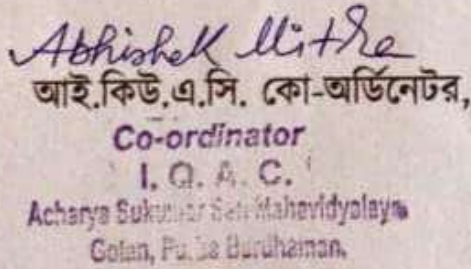 Abhishek Mitra
আই.কিউ.এ.সি. কো-অর্ডিনেটর,
Co-ordinator
I. Q. A. C.
Acharya Sukumar Sen Mahavidyalaya
Gotan, Purba Burdhaman.